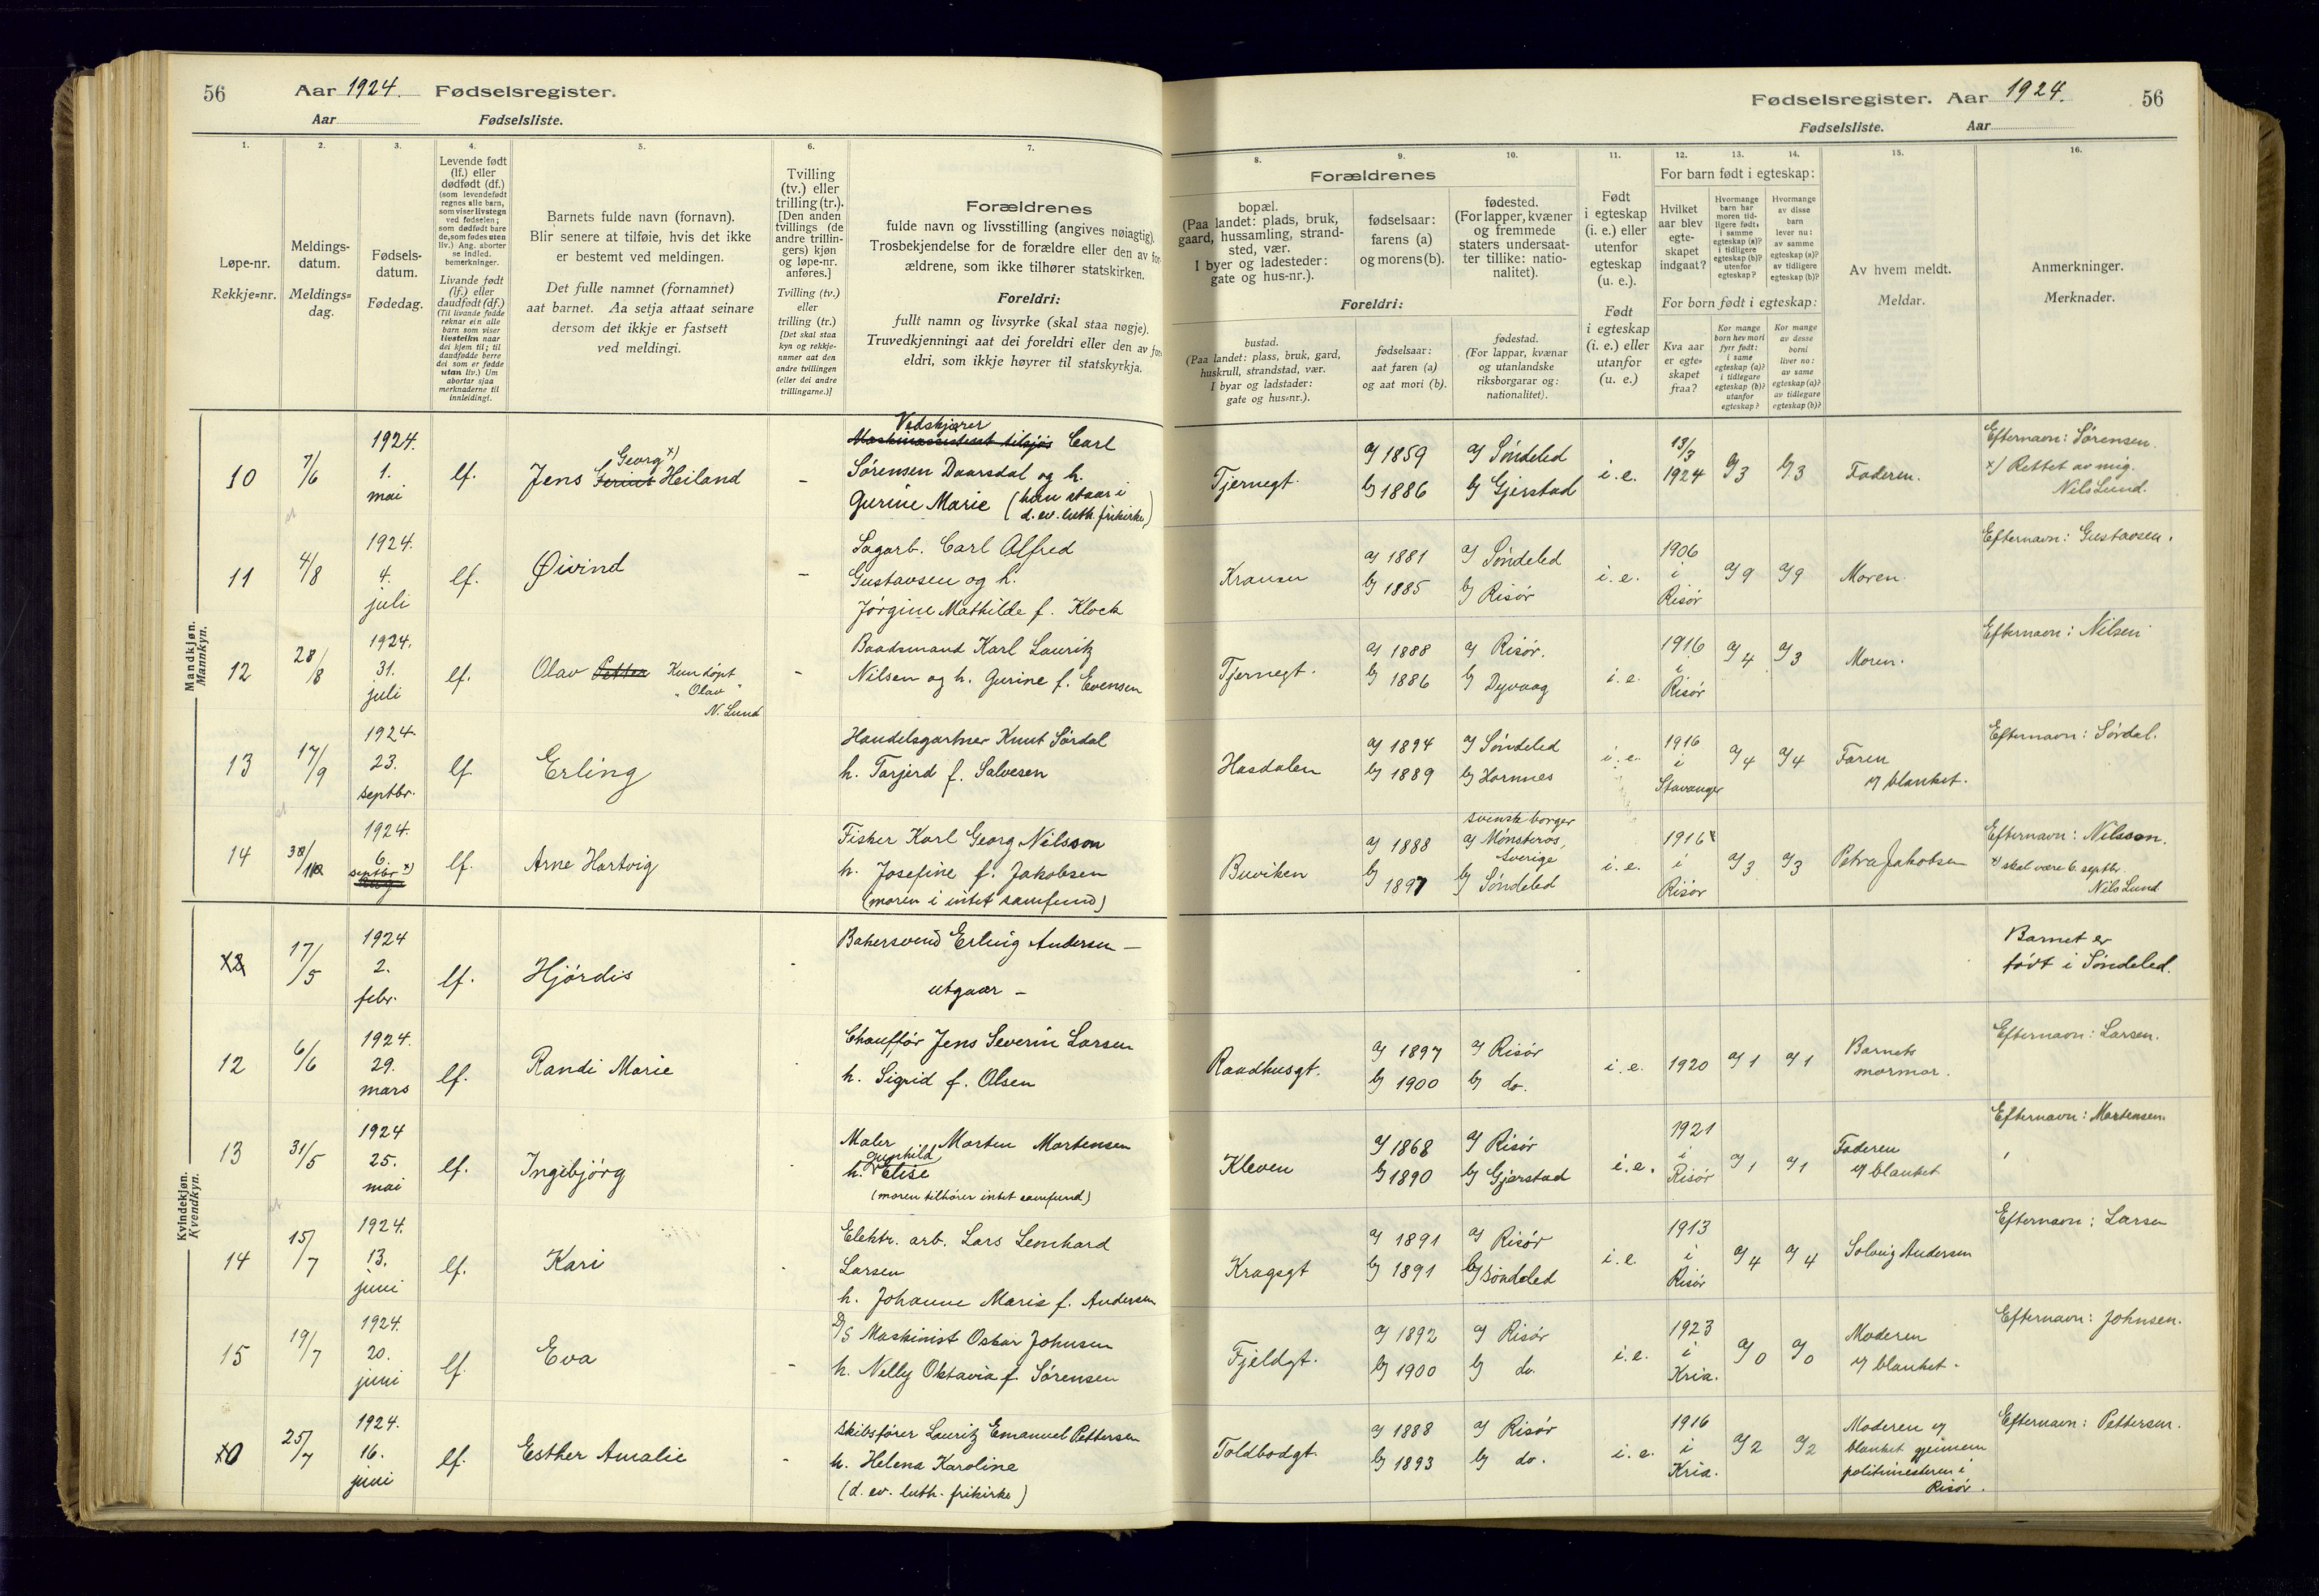 56 Aar 1924. Fødselsregister.
Aar Fødselsliste.
1. 2. 3. 4. 5. 6. 7.
Løpe-nr.
Rekkje=nr.
Meldings-
datum.
Meldings=
dag.
Fødsels-
datum.
Fødedag.
Levende født
(lf.) eller
dødfødt (df.)
(som levendefødt
regnes alle barn,
som viser livstegn
ved fødselen;
som dødfødt bare
de, som fødes uten
liv.) Ang. aborter
se indled.
bemerkninger.
Livande født
(lf.) eller
daudfødt (df.)
(Til livande fødde
reknar ein alle
barn som viser
livsteikn naar
dei kjem til; til
daudfødde berre
dei som er fødde
utan liv.) Um
abortar sjaa
merknaderne til
innleidingi.
Barnets fulde navn (fornavn).
Blir senere at tilføie, hvis det ikke
er bestemt ved meldingen.
Det fulle namnet (fornamnet)
aat barnet. Aa setja attaat seinare
dersom det ikkje er fastsett
ved meldingi.
Tvilling
(tv.) eller
trilling (tr.).
[Den anden
tvillings (de
andre trillin-
gers) kjøn
og løpe-nr.
anføres.]
Tvilling (tv.)
eller
trilling (tr.)
[Det skal staa
kyn og rekkje-
numer aat den
andre tvillingen
(eller dei andre
trillingarne.)]
Forældrenes
fulde navn og livsstilling (angives nøiagtig).
Trosbekjendelse for de forældre eller den av for-
ældrene, som ikke tilhører statskirken.
Foreldri:
fullt namn og livsyrke (skal staa nøgje).
Truvedkjenningi aat dei foreldri eller den av for-
eldri, som ikkje høyrer til statskyrkja.
Mandkjøn.
Mannkyn.
10 7/6 1924. 1. mai lf. Jens Georg x) Heiland -
Vedskjærer
Carl
Sørensen Daarsdal og h.
Gurine Marie (hun staar i
d. ev. luth. frikirke)
11 4/8 1924. 4. juli lf. Øivind -
Sagarb. Carl Alfred
Gustavsen og h.
Jørgine Mathilde f. Klock
12 28/8 1924. 31. juli lf. Olav Petter Kun døpt
"Olav"
N. Lund
-
Baadsmand Karl Lauritz
Nilsen og h. Gurine f. Evensen
13 17/9 1924. 23. septbr. lf. Erling
Handelsgartner Knut Sørdal
h. Tarjerd f. Salvesen
14 1924. 6. septbr x) lf. Arne Hartvig
Fisker Karl Georg Nilsson
h. Josefine f. Jakobsen
(moren i intet samfund)
Kvindekjøn.
Kvendkyn.
17/5 1924 2. febr. lf. Hjørdis -
Bakersvend Erling Andersen —
utgaar —
12 6/6 1924. 29. mars lf. Randi Marie -
Chauffør Jens Severin Larsen
h. Sigrid f. Olsen
13 31/5 1924 25. mai lf. Ingebjørg -
Maler Morten Mortensen
Gunhild
h. Elise
(moren tilhører intet samfund)
14 15/7 1924. 13. juni lf. Kari
Elektr. arb. Lars Leonhard
Larsen
h. Johanne Marie f. Andersen
15 19/7 1924. 20. juni lf. Eva -
D/S Maskinist Oskar Johnsen
h. Nelly Oktavia f. Sørensen
25/7 1924. 16. juni lf. Esther Amalie -
Skibsfører Lauritz Emanuel Pettersen
h. Helena Karoline
(d. ev. luth. frikirke)
Fødselsregister. Aar 1924. 56
Fødselsliste. Aar
8. 9. 10. 11. 12. 13. 14. 15. 16.
Forældrenes
bopæl.
(Paa landet: plads, bruk,
gaard, hussamling, strand-
sted, vær.
I byer og ladesteder:
gate og hus-nr.).
fødselsaar:
farens (a)
og morens (b).
fødested.
(For lapper, kvæner
og fremmede
staters undersaat-
ter tillike: natio-
nalitet).
Foreldri:
bustad.
(Paa landet: plass, bruk, gard,
huskrull, strandstad, vær.
I byar og ladstader:
gate og hus=nr.).
fødselsaar:
aat faren (a)
og aat mori (b).
fødestad.
(For lappar, kvænar
og utanlandske
riksborgarar og:
nationalitet).
Født
i egteskap
(i. e.) eller
utenfor
egteskap
(u. e.).
Født
i egteskap
(i. e.) eller
utanfor
(u. e.)
For barn født i egteskap:
Hvilket
aar blev
egte-
skapet
indgaat?
Hvormange
barn har
moren tid-
ligere født:
i samme
egteskap (a)?
i tidligere
egteskap (b)?
utenfor
egteskap?
Hvormange
av disse
barn
lever nu:
av samme
egteskap (a)?
av tidligere
egteskap (b)?
For born født i egteskap:
Kva aar
er egte=
skapet
fraa?
Kor mange
born hev mori
fyrr født:
i same
egteskap (a)?
i tidlegare
egteskap (b)?
utanfor
egteskap?
Kor mange
av desse
borni
liver no:
av same
egteskap (a)?
av tidlegare
egteskap (b)?
Av hvem meldt.
Meldar.
Anmerkninger.
Merknader.
Tjernegt. a) 1859 a) Søndeled i. e. 13/3 1924 Faderen. Efternavn: Sørensen.
b) 1886 b) Gjerstad
x) Rettet av mig.
Nils Lund.
Kransen a) 1881 a) Søndeled i. e. 1906 i Risør a) 9 a) 9 Moren. Efternavn: Gustavsen.
b) 1885 b) Risør
Tjernegt. a) 1888 a) Risør. i. e. 1916 i Risør a) 4 a) 3 Moren. Efternavn: Nilsen
b) 1886 b) Dyvaag
Hasdalen a) 1894 a) Søndeled i. e. 1916 i Stavanger a) 4 a) 4 Faren Efternavn: Sørdal.
b) 1889 b) Hornnes
pr blanket.
svensk borger
Buviken a) 1888 a) Mønsterås, Sverige i. e. 1916 i Risør a) 3 a) 3 Petra Jakobsen Efternavn: Nilsson.
b) 1897 b) Søndeled
x) skal være 6. septbr.
Nils Lund
Barnet er
født i Søndeled.
Raadhusgt. a) 1897 a) Risør i. e. 1920 a) 1 a) 1 Barnets mormor. Efternavn: Larsen.
b) 1900 b) do.
Kleven a) 1868 a) Risør i. e. 1921 i Risør a) 1 a) 1 Faderen Efternavn: Mortensen.
b) 1890 b) Gjerstad
pr blanket
Kragsgt a) 1891 a) Risør i. e. 1913 i Risør a) 4 a) 4 Solveig Andersen Efternavn: Larsen
b) 1891 b) Søndeled
Fjeldgt. a) 1892 a) Risør i. e. 1923 i Kria. a) 0 a) 0 Moderen Efternavn: Johnsen.
b) 1900 b) do.
pr blanket.
Toldbodgt. a) 1888 a) Risør i. e. 1916 i Kria. a) 2 a) 2 Moderen pr Efternavn: Pettersen.
b) 1893 b) do.
blanket gjennem
politimesteren i
Risør.